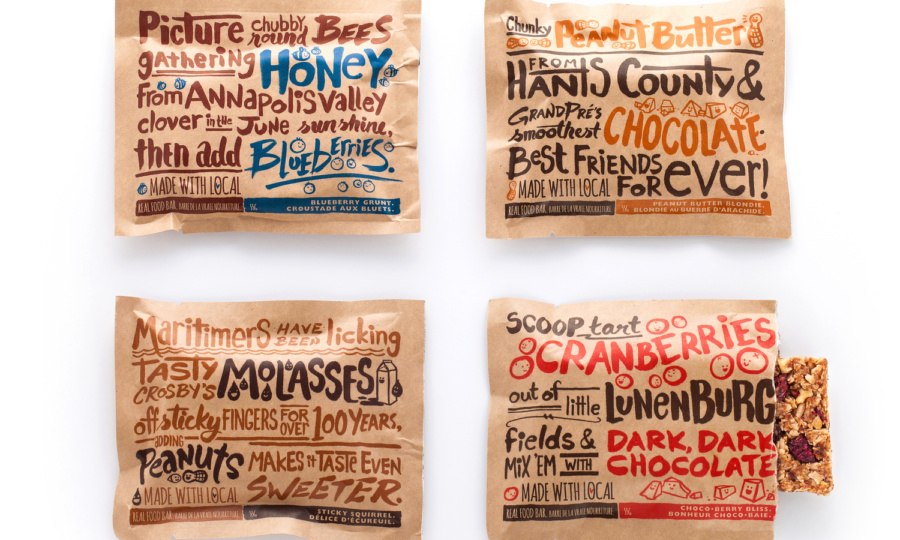 Picture chubby, round BEES
gathering HONEY
from Annapolis Valley
clover in the June sunshine,
then add Blueberries.
MADE WITH LOCAL
REAL FOOD BAR. BARRE DE LA VRAIE NOURRITURE
BLUEBERRY GRUNT.
CROUSTADE AUX BLUETS.
Chunky Peanut Butter
FROM
HANTS COUNTY &
GRAND PRÉ'S
smoothest CHOCOLATE.
BEST FRIENDS
FOR ever!
MADE WITH LOCAL
REAL FOOD BAR. BARRE DE LA VRAIE NOURRITURE
PEANUT BUTTER BLONDIE.
BLONDIE AU BUERRE D'ARACHIDE.
Maritimers HAVE BEEN licking
TASTY
CROSBY'S MOLASSES
off sticky FINGERS FOR OVER 100 YEARS,
ADDING
Peanuts MAKES it TASTE EVEN
SWEETER.
MADE WITH LOCAL
REAL FOOD BAR. BARRE DE LA VRAIE NOURRITURE
STICKY SQUIRREL.
DÉLICE D'ÉCUREUIL.
SCOOP tart
CRANBERRIES
out of little LUNENBURG
fields & DARK, DARK
MIX 'EM WITH CHOCOLATE
MADE WITH LOCAL
REAL FOOD BAR. BARRE DE LA VRAIE NOURRITURE
CHOCO-BERRY BLISS.
BONHEUR CHOCO-BAIE.